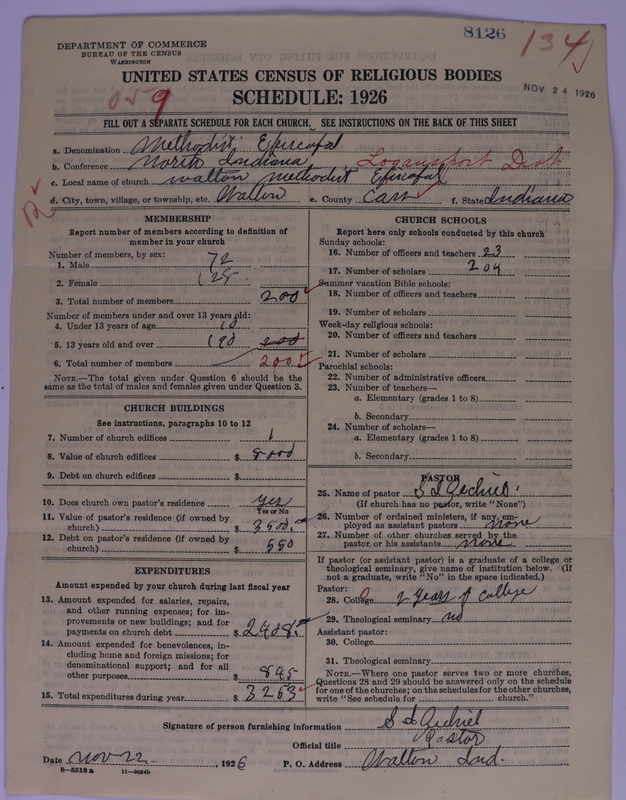 8126
134
DEPARTMENT OF COMMERCE
BUREAU OF THE CENSUS
WASHINGTON
UNITED STATES CENSUS OF RELIGIOUS BODIES
NOV 24 1926
059
SCHEDULE: 1926
FILL OUT A SEPARATE SCHEDULE FOR EACH CHURCH. SEE INSTRUCTIONS ON THE BACK OF THIS SHEET
a. Denomination Methodist Episcopal
b. Conference North Indiana Logansport Dist
c. Local name of church Walton Methodist Episcopal
d. City, town, village, or township, etc. Walton e. County Cass f. State Indiana
MEMBERSHIP
Report number of members according to definition of
member in your church
Number of members, by sex:
1. Male 72
2. Female 128
3. Total number of members 200
Number of members under and over 13 years old:
4. Under 13 years of age 10
5. 13 years old and over 190 200
6. Total number of members 200
NOTE.—The total given under Question 6 should be the
same as the total of males and females given under Question 3.
CHURCH BUILDINGS
See instructions, paragraphs 10 to 12
7. Number of church edifices 1
8. Value of church edifices $ 8000
9. Debt on church edifices $
10. Does church own pastor's residence yes
Yes or No
11. Value of pastor's residence (if owned by
church) $ 3500
12. Debt on pastor's residence (if owned by
church) $ 550
EXPENDITURES
Amount expended by your church during last fiscal year
13. Amount expended for salaries, repairs,
and other running expenses; for im-
provements or new buildings; and for
payments on church debt $
14. Amount expended for benevolences, in-
cluding home and foreign missions; for
denominational support; and for all
other purposes $
15. Total expenditures during year $ 3253
CHURCH SCHOOLS
Report here only schools conducted by this church
Sunday schools:
16. Number of officers and teachers 23
17. Number of scholars 204
Summer vacation Bible schools:
18. Number of officers and teachers
19. Number of scholars
Week-day religious schools:
20. Number of officers and teachers
21. Number of scholars
Parochial schools:
22. Number of administrative officers
23. Number of teachers—
a. Elementary (grades 1 to 8)
b. Secondary
24. Number of scholars—
a. Elementary (grades 1 to 8)
b. Secondary
PASTOR
25. Name of pastor S L
(If church has no pastor, write "None")
26. Number of ordained ministers, if any, em-
ployed as assistant pastors none
27. Number of other churches served by the
pastor or his assistants none
If pastor (or assistant pastor) is a graduate of a college or
theological seminary, give name of institution below. (If
not a graduate, write "No" in the space indicated.)
Pastor:
28. College 2 years of college
29. Theological seminary no
Assistant pastor:
30. College
31. Theological seminary
NOTE.—Where one pastor serves two or more churches,
Questions 28 and 29 should be answered only on the schedule
for one of the churches; on the schedules for the other churches,
write "See schedule for church."
Signature of person furnishing information S L
Official title Pastor
Date Nov 22, 1926 P. O. Address Walton Ind.
8—5518a 11—9054b